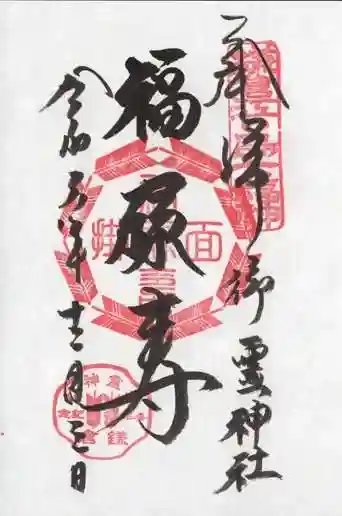 奉拝 御霊神社
福禄寿
令和五年十二月三日
面掛